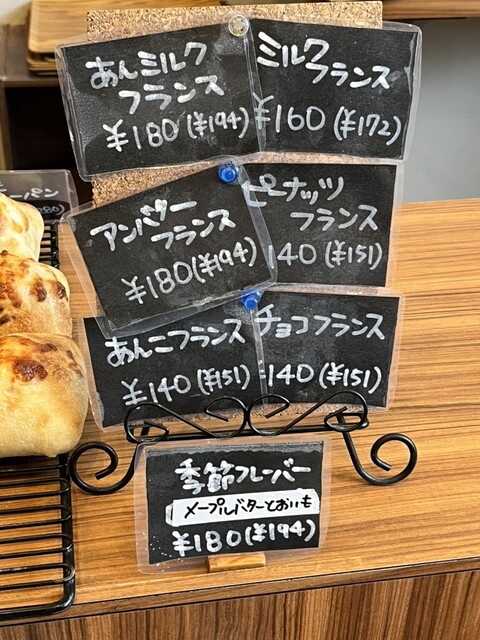 あんミルク
フランス
¥180(¥194)
ミルク
フランス
¥160(¥172)
アンバター
フランス
¥180(¥194)
ピーナッツ
フランス
140(¥151)
あんこフランス
¥140(¥151)
チョコフランス
140(¥151)
季節フレーバー
メープルバターとおいも
¥180(¥194)